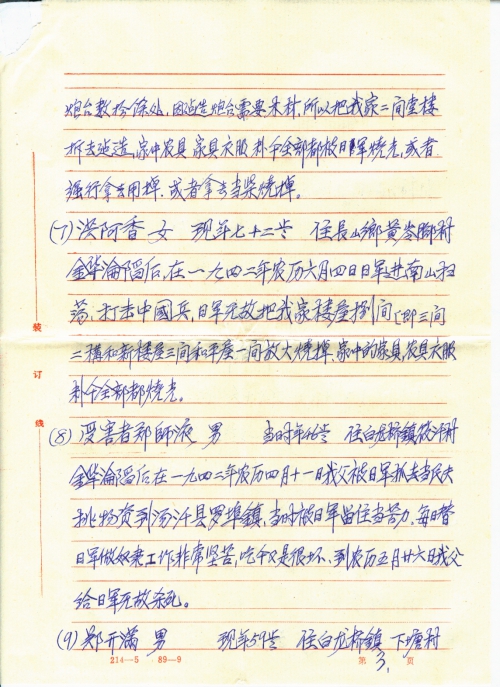 炮台数拾余处,因造炮台需要木材,所以把我家二间堂楼
拆去建造,家中农具家具衣服补千全部都被日军烧光,或者
强行拿去用掉,或者拿去当柴烧掉。
(7) 洪阿香 女 现年七十二岁 住長山鄉黄岩脚村
金华淪陷后,在一九四二年农历六月四日日军进南山扫
荡,打击中國兵,日军无故把我家楼屋捌间[即三间
二構和新楼屋三间和平屋一间放火烧掉,家中的家具农具衣服
补千全部都烧光。
(8) 受害者郑師液 男 当时年46岁 住白龙桥鎮 村
金华淪陷后在一九四二年农历四月十一日我父被日军抓去当民夫
挑物资到汤汗县罗埠鎮,当时被日軍留住当苦力,每日替
日军做奴隶工作非常坚苦,吃个又是很坏,到农历五月廿六日我父
给日軍无故杀死。
(9) 郑开满 男 现年59岁 住白龙桥鎮下塘村
214—5 89—9 第3页
装
订
线